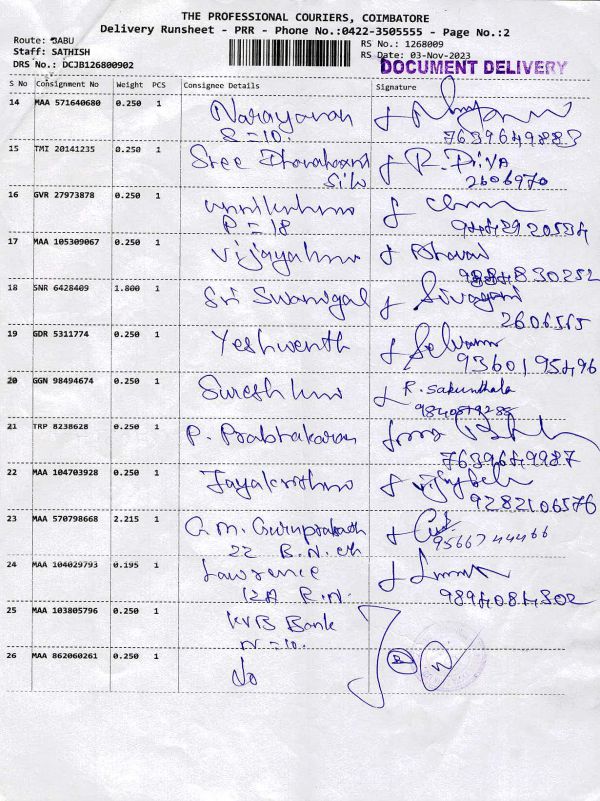 THE PROFESSIONAL COURIERS, COIMBATORE
Delivery Runsheet - PRR - Phone No.:0422-3505555 - Page No.:2
Route: BABU
Staff: SATHISH
DRS No.: DCJB126800902
RS No.: 1268009
RS Date: 03-Nov-2023
DOCUMENT DELIVERY
S No Consignment No Weight PCS Consignee Details Signature
14 MAA 571640680 0.250 1 Narayanan
S=10. 7639649883
15 TMI 20141235 0.250 1 Sree R. Diya
2606970
16 GVR 27973878 0.250 1
P=18 9442920534
17 MAA 105309067 0.250 1 Bhavani
9884830252
18 SNR 6428409 1.800 1 Sri Swamigal Sivagami
2606565
19 GDR 5311774 0.250 1 Yeshwenth Selvam
9360195496
20 GGN 98494674 0.250 1 R. Sakunthala
21 TRP 8238628 0.250 1 P. Prabhakaran
7639649987
22 MAA 104703928 0.250 1
9282106576
23 MAA 570798668 2.215 1 G.M. Guruprakash
22 B.N. 9566744466
24 MAA 104029793 0.195 1 Lawrence
12A R.N. 9894084802
25 MAA 103805796 0.250 1 KVB Bank
N=10.
26 MAA 862060261 0.250 1 do